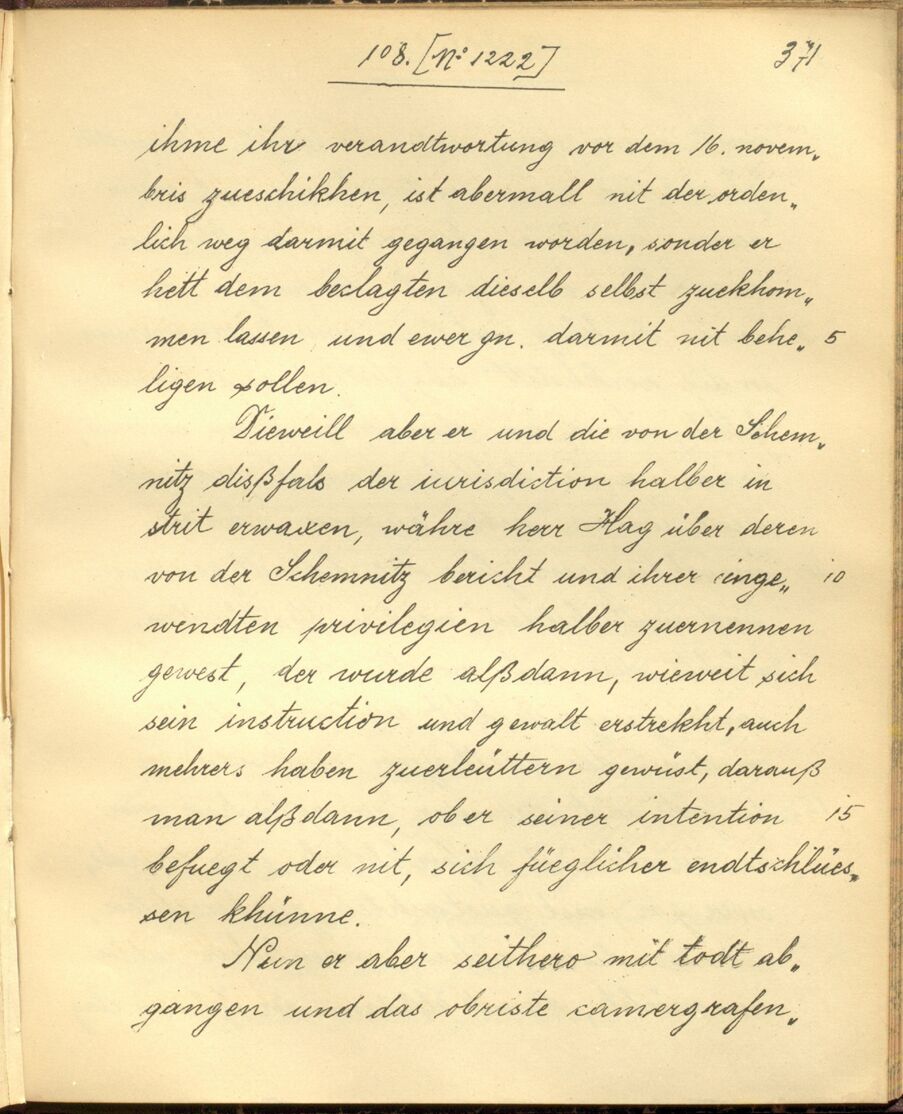 108. [No 1222] 371
ihme ihr verandtwortung vor dem 16. novem„
bris zueschikhen, ist abermall nit der orden„
lich weg darmit gegangen worden, sonder er
hett dem beclagten dieselb selbst zuekhom„
men lassen und ewer gn. darmit nit behe„ 5
ligen sollen.
Dieweill aber er und die von der Schem„
nitz dißfals der iurisdiction halber in
strit erwaxen, währe herr Hag über deren
von der Schemnitz bericht und ihrer einge„ 10
wendten privilegien halber zuernennen
gewest, der wurde alßdann, wieweit sich
sein instruction und gewalt erstrekht, auch
mehrers haben zuerleüttern gewüst, darauß
man alßdann, ob er seiner intention 15
befuegt oder nit, sich füeglicher endtschlües„
sen khünne.
Nun er aber seithero mit todt ab„
gangen und das obriste camergrafen„